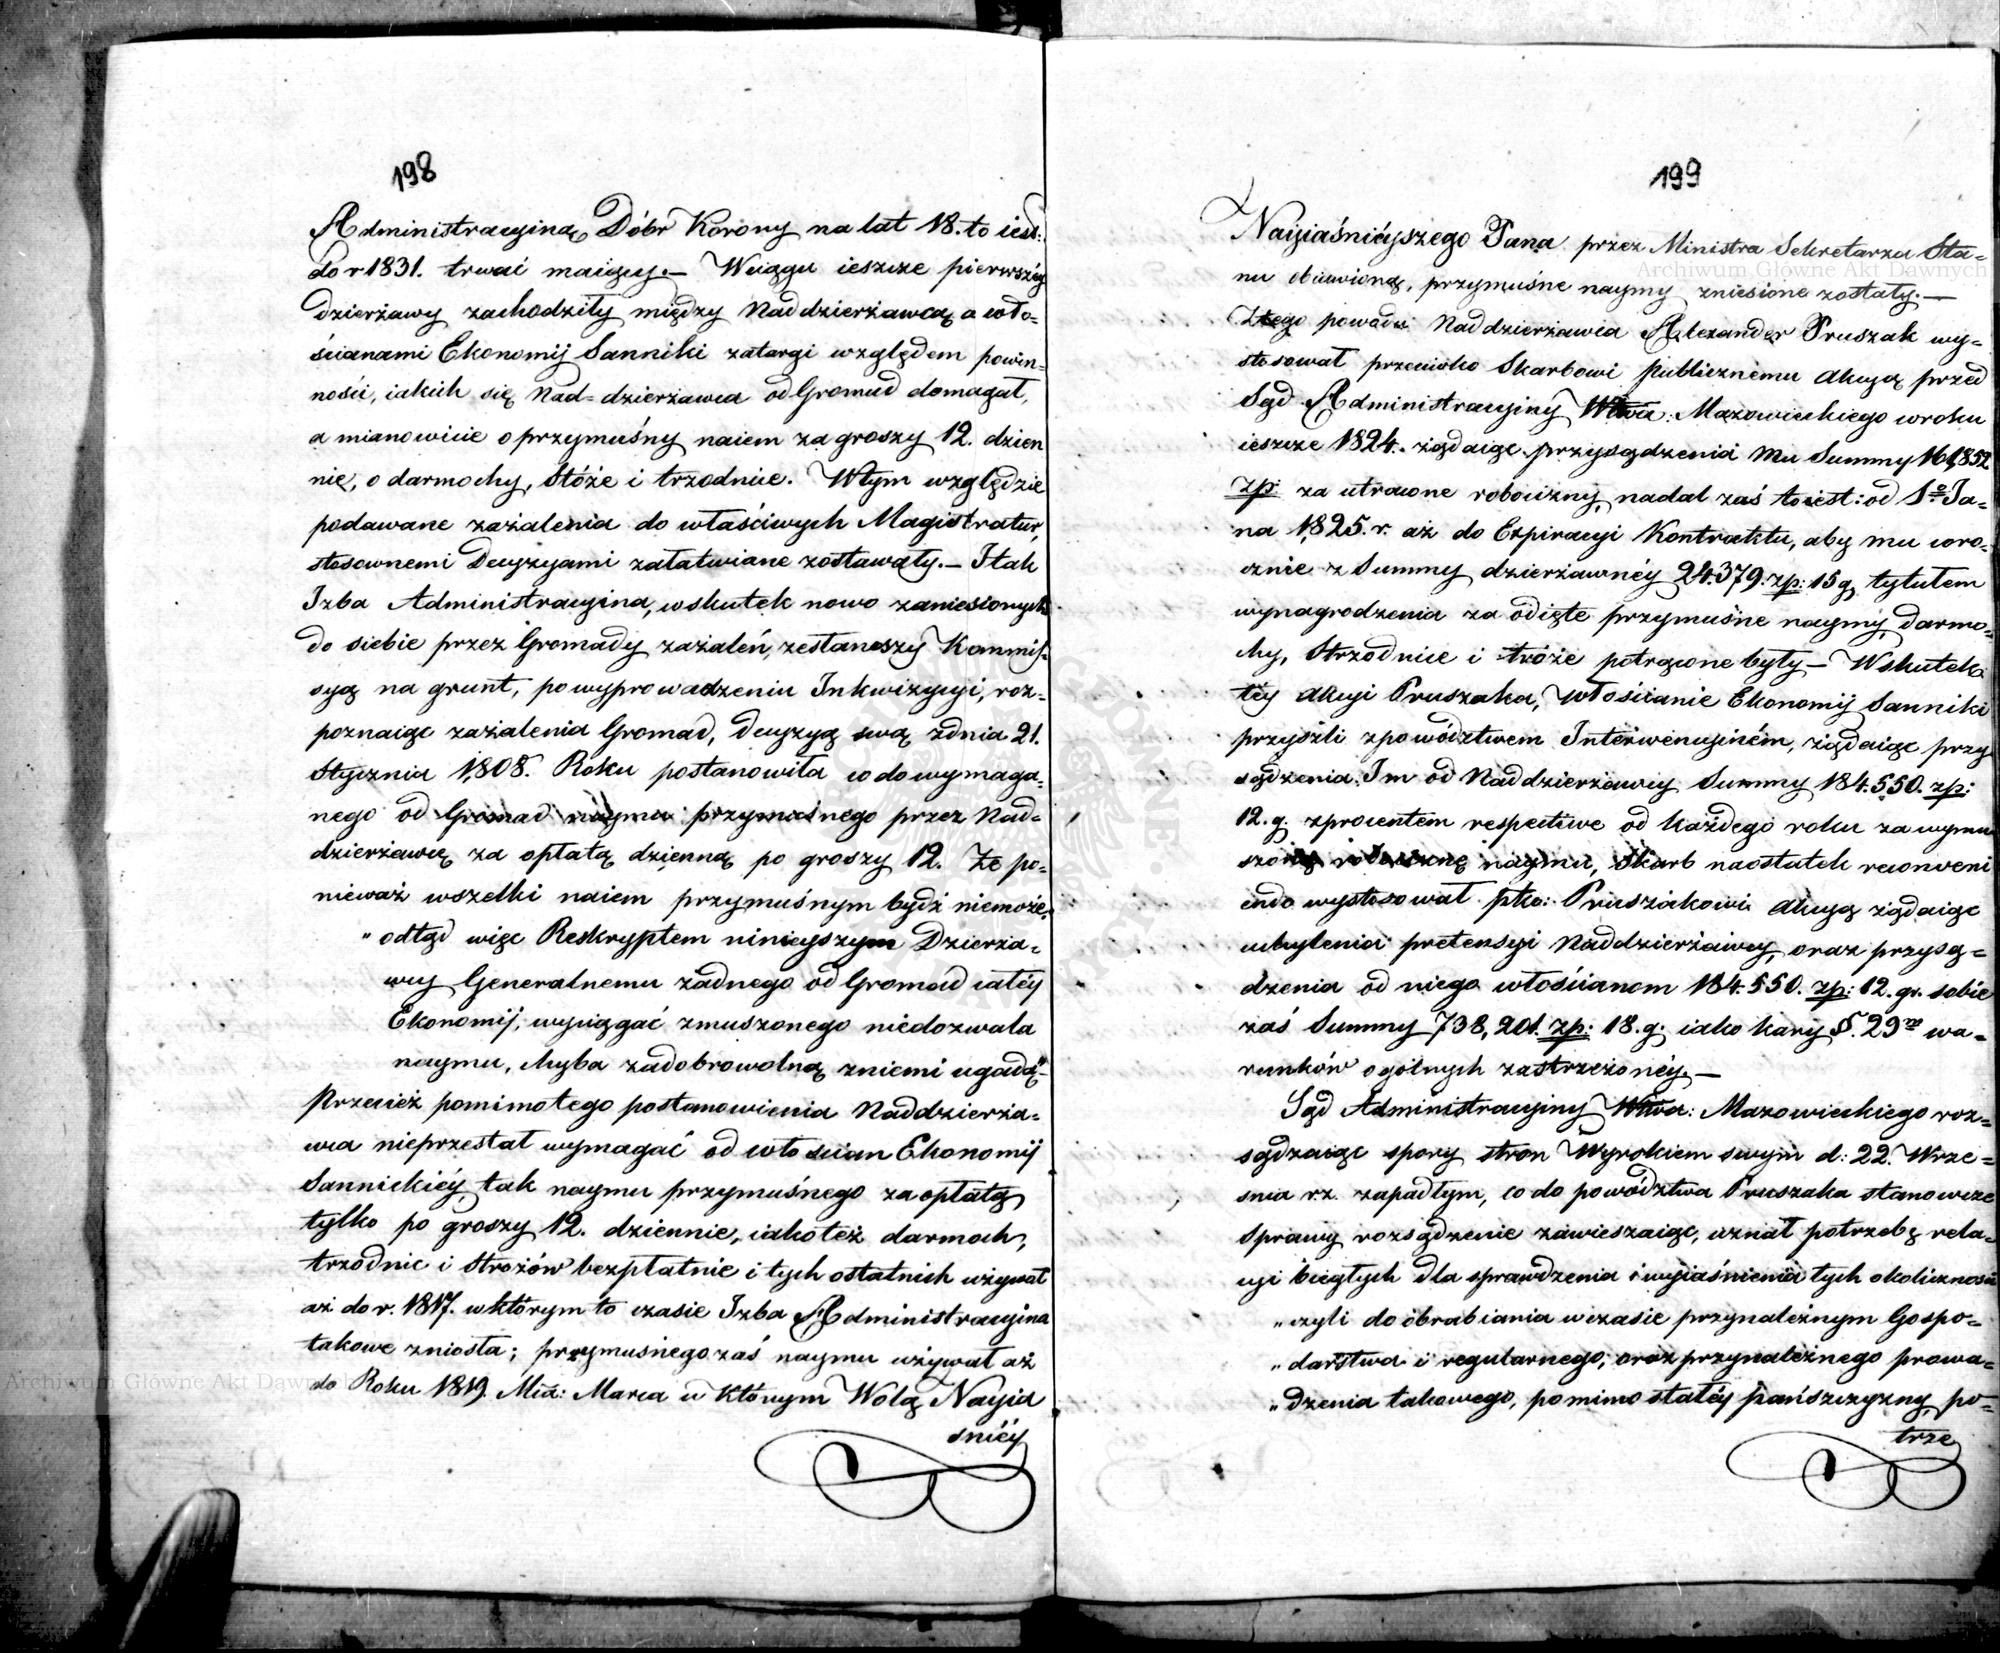 198
Administracyiną Dóbr Korony na lat 18. to iest:
do r 1831. trwać maiący.— Wciągu ieszcze pierwszéy
dzierżawy zachodziły między Naddzierżawcą a wło-
ścianami Ekonomij Sanniki zatargi względem powin-
ności, iakich się Nad=dzierżawca od Gromad domagał,
a mianowicie o przymuśny naiem za groszy 12. dzien
nie, o darmochy, Stóże i trzodnie. Wtym względzie
podawane zażalenia do właściwych Magistratur,
stosownemi Decyzyami załatwiane zostawały.— Itak
Izba Administracyina, wskutek nowo zaniesionych
do siebie przez Gromady zażaleń, zesławszy Kommis-
syą na grunt, po wyprowadzeniu Inkwizycyi, roz-
poznaiąc zażalenia Gromad, decyzyą swą zdnia 21.
Stycznia 1808. Roku postanowiła co do wymaga-
nego od Gromad naymu przymuśnego przez Nad-
dzierżawcę za opłatą dzienną po groszy 12. Że po-
nieważ wszelki naiem przymuśnym bydź niemoże,
" odtąd więc Reskryptem ninieyszym Dzierża-
wcy Generalnemu żadnego od Gromad całéy
Ekonomij, wyciągać zmuszonego niedozwala
naymu, chyba zadobrowolną zniemi ugodą"
Przecież pomimo tego postanowienia Naddzierża-
wca nieprzestał wymagać od włościan Ekonomij
Sannickiéy tak naymu przymuśnego za opłatą
tylko po groszy 12. dziennie, iakoteż darmoch,
trzodnic i Strożów bezpłatnie i tych ostatnich używał
aż do r. 1817. w którym to czasie Izba Administracyina
takowe zniosła; przymusnego zaś naymu używał aż
do Roku 1819. Mca: Marca w którym Wolą Nayia
śniéy
199
Naiiaśniéyszego Pana przez Ministra Sekretarza Sta-
nu obiawioną, przymuśne naymy zniesione zostały.—
Ztego powodu Naddzierżawca Alexander Pruszak wy-
stosował przeciwko Skarbowi publicznemu akcyą przed
Sąd Administracyiny Wwa: Mazowieckiego wroku
ieszcze 1824. żądaiąc przysądzenia mu Summy 161,852
zp: za utracone robocizny, nadal zaś toiest: od S⁰ Ja-
na 1825. r. aż do Expiracyi Kontraktu, aby mu coro-
cznie z Summy dzierżawnéy 24.379. zp: 15 g. tytułem
wynagrodzenia za odięte przymuśne naymy, darmo-
chy, Strzodnie i stróże potrącone były.— Wskutek
téy akcyi Pruszaka, Włościanie Ekonomij Sanniki
przyszli zpowództwem Interwencyiném, żądaiąc przy
sądzenia Im od Naddzierżawcy Summy 184.550. zp:
12. g. zprocentem respective od każdego roku za wymu
szoną robociznę naymu, Skarb naostatek reconveni
endo wystosował pko: Pruszakowi akcyą żądaiąc
uchylenia pretensyi Naddzierżawcy, oraz przysą-
dzenia od niego włościanom 184.550. zp: 12. gr. sobie
zaś Summy 738,201. zp: 18. g. iako kary §. 29ᵐ wa-
runków ogólnych zastrzeżonéy.—
Sąd Administracyiny Wwa: Mazowieckiego roz-
sądzaiąc spory stron Wyrokiem swym d: 22. Wrze-
snia rz. zapadłym, co do powództwa Pruszaka stanowcze
sprawy rozsądzenie zawieszaiąc, uznał potrzebę rela-
cyi biegłych dla sprawdzenia i wyiaśnienia tych okoliczności
" czyli do obrabiania wczasie przynależnym Gospo-
" darstwa i regularnego, oraz przynależnego prowa-
" dzenia takowego, pomimo stałéy pańszczyzny, po-
trze
Archiwum Główne Akt Dawnych
Archiwum Główne Akt Dawnych